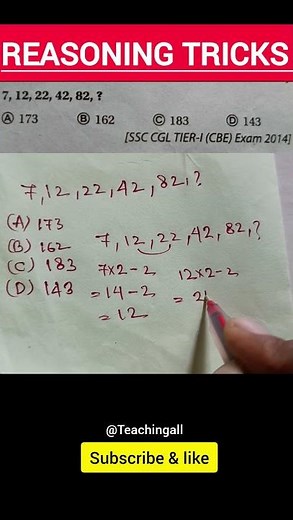 REASONING TRICKS
7, 12, 22, 42, 82, ?
Ⓐ 173 Ⓑ 162 Ⓒ 183 Ⓓ 143
[SSC CGL TIER-I (CBE) Exam 2014]
7, 12, 22, 42, 82, ?
(A) 173
(B) 162
(C) 183
(D) 143
7, 12, 22, 42, 82, ?
7×2-2 12×2-2
=14-2 = 2
=12
@Teachingall
Subscribe & like